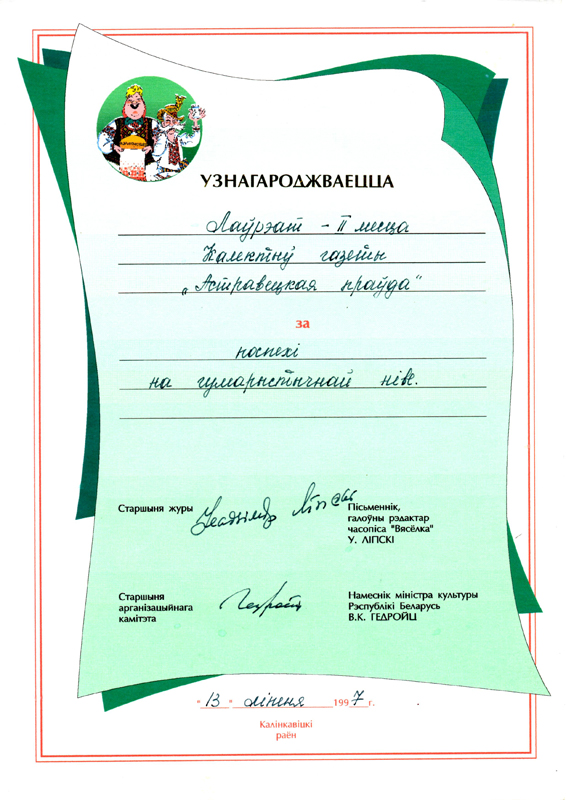 УЗНАГАРОДЖВАЕЦЦА
Лаўрэат - II месца
Калектыў газеты
„Астравецкая праўда“
за
поспехі
на гумарыстычнай ніве.
Старшыня журы
Уладзімір Ліпскі
Пісьменнік,
галоўны рэдактар
часопіса "Вясёлка"
У. ЛІПСКІ
Старшыня
арганізацыйнага
камітэта
Гедройц
Намеснік міністра культуры
Рэспублікі Беларусь
В.К. ГЕДРОЙЦ
"13" ліпеня 1997 г.
Калінкавіцкі
раён